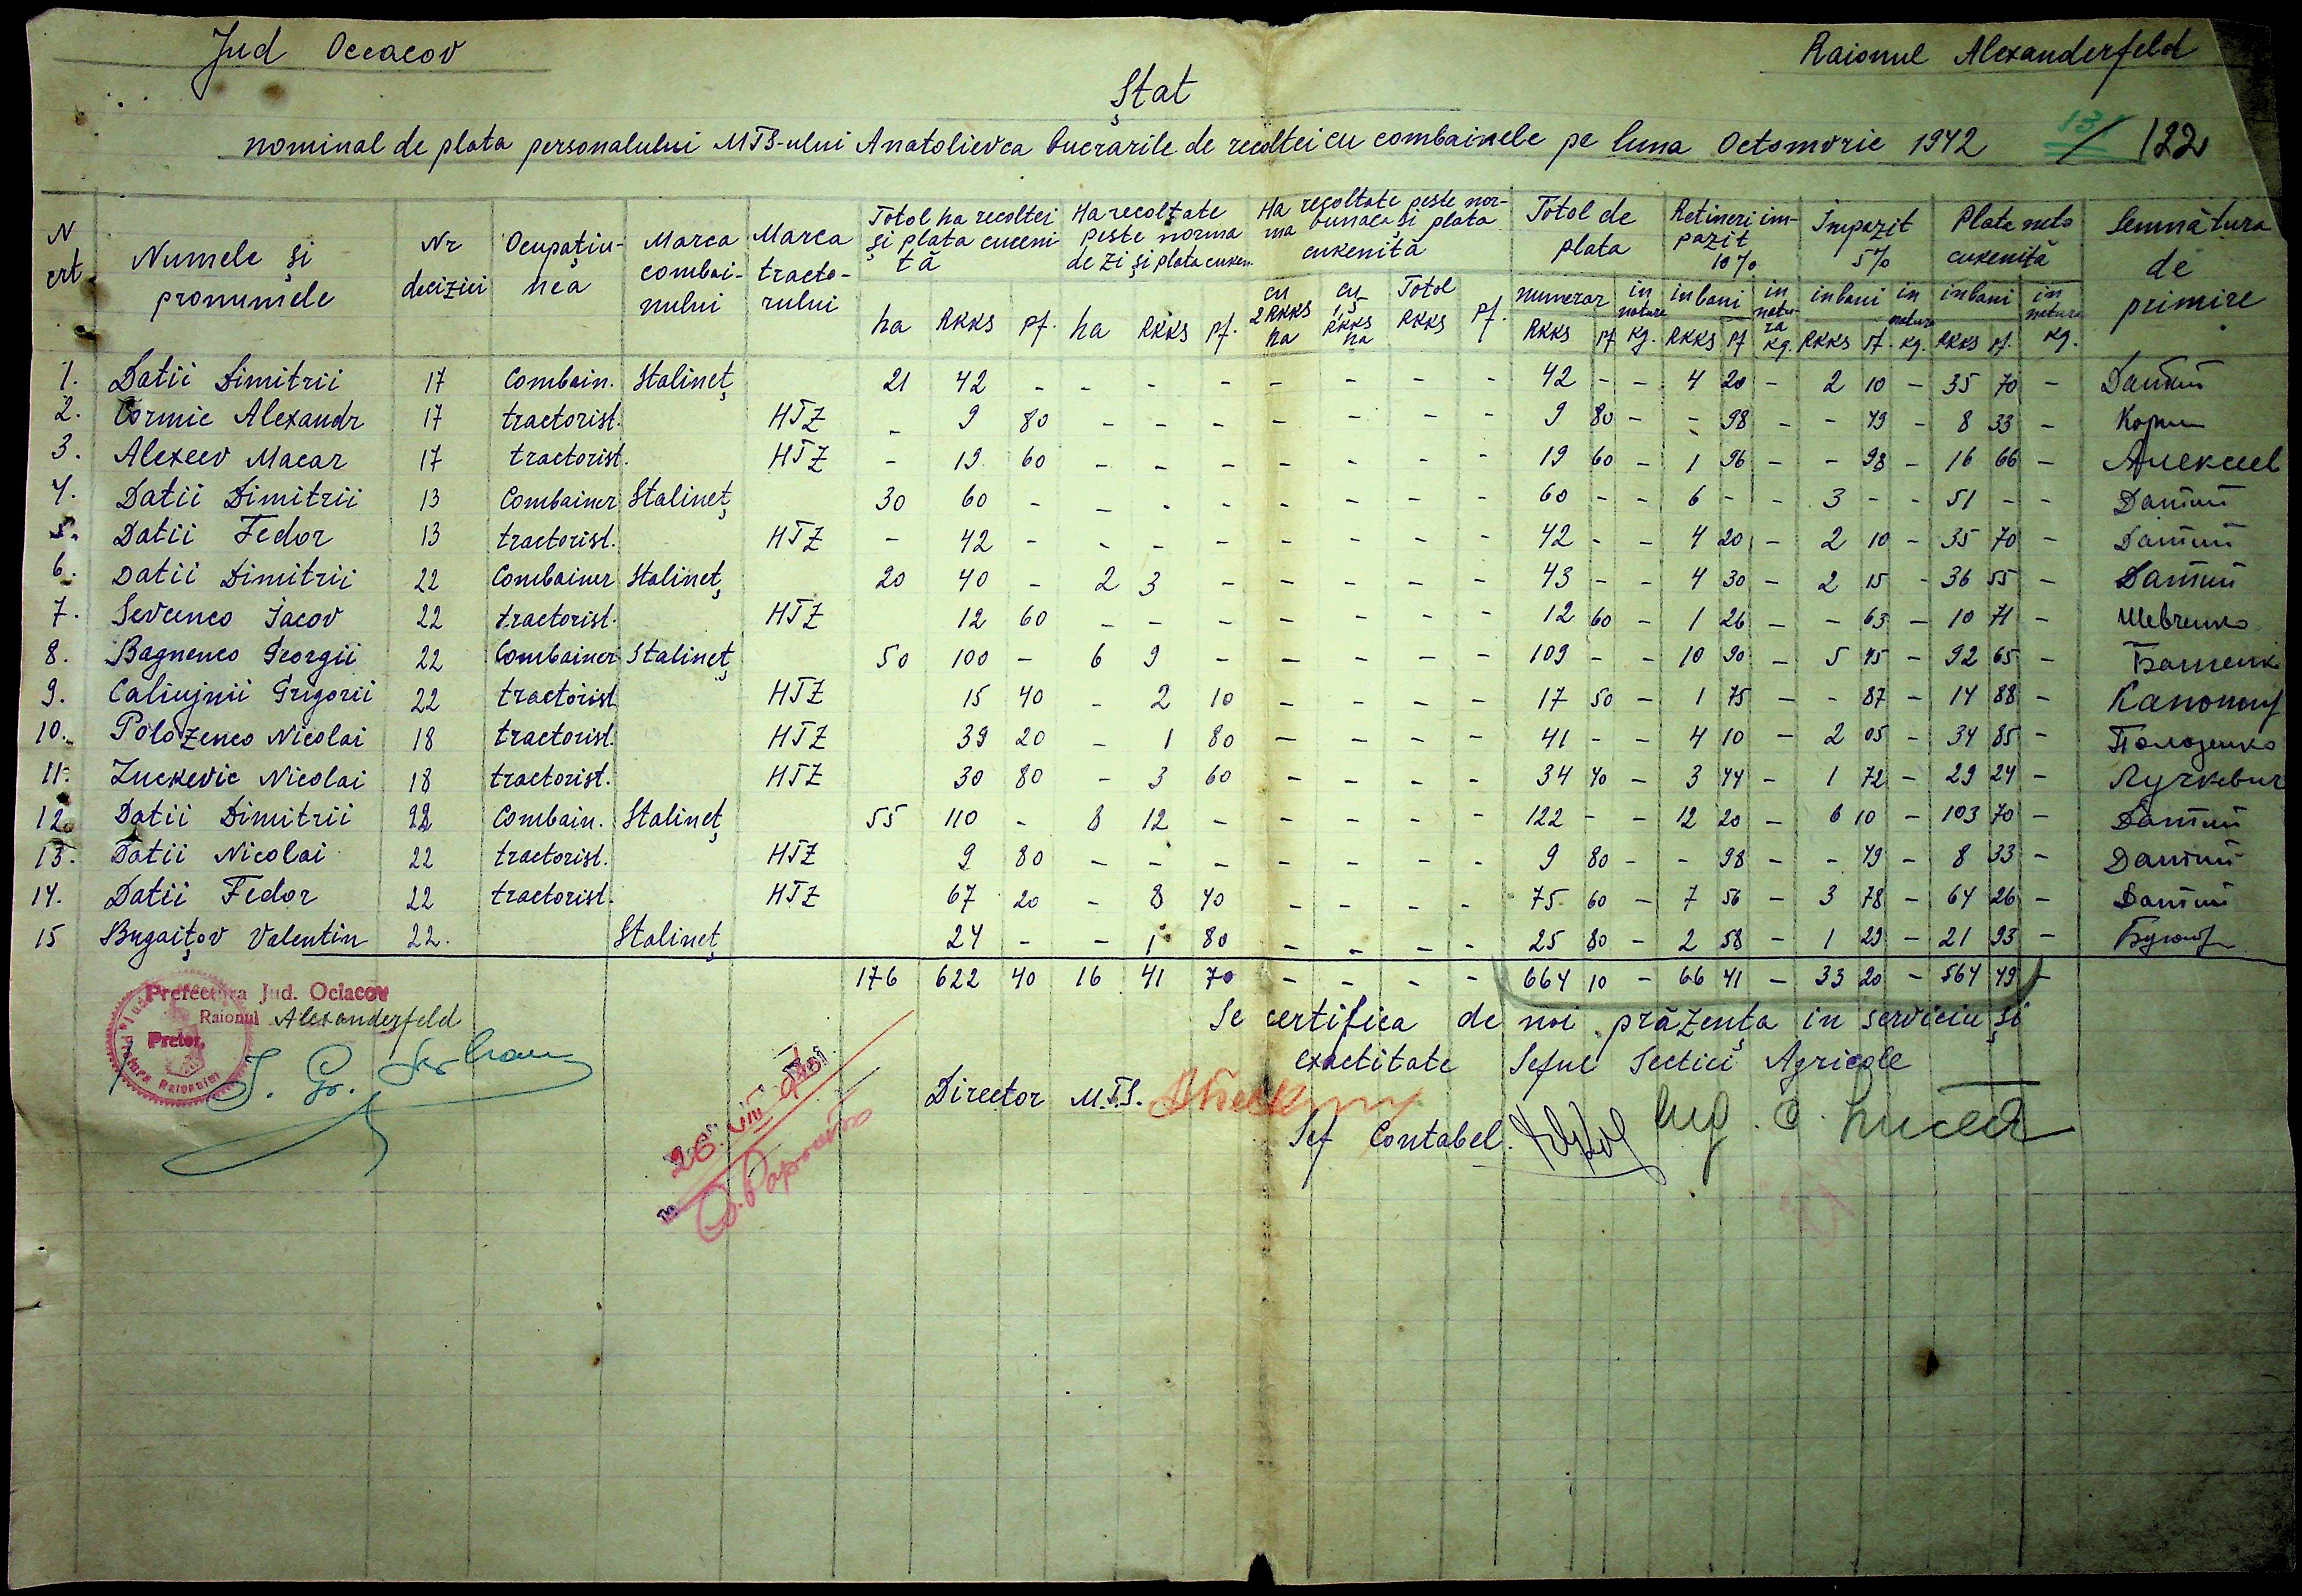 Jud Oceacov
Raionul Alexanderfeld
Ştat
nominal de plata personalului MTS-ului Anatolievca lucrarile de recoltei cu combainele pe luna Octomvrie 1942 13/122
N crt. Numele şi pronumele Nr deciziei Ocupaţiunea Marca combainului Marca tractorului Totol ha recoltei şi plata cuceni tă Ha recoltate peste norma de zi şi plata cuken. Ha recoltate peste norma şi plata cukenită Totol de plata Retineri impazit 10% Impazit 5% Plata neto cukenită Semnătura de primire
ha RKKS pf. ha RKKS pf. cu 2 RKKS ha cu 1,5 RKKS ha Totol RKKS pf. numerar RKKS pf in natura kg. in bani RKKS pf in natura kg. in bani RKKS pf. in natura kg. in bani RKKS pf. in natura kg.
1. Datii Dimitrii 17 Combain. Stalineţ 21 42 - - - - - - - - 42 - - 4 20 - 2 10 - 35 70 - Датий
2. Cormic Alexandr 17 tractorist. HTZ - 9 80 - - - - - - - 9 80 - - 98 - - 49 - 8 33 -
3. Alexeev Macar 17 tractorist. HTZ - 19 60 - - - - - - - 19 60 - 1 96 - - 98 - 16 66 - Алексеев
4. Datii Dimitrii 13 Combainer Stalineţ 30 60 - - - - - - - - 60 - - 6 - - 3 - - 51 - - Датий
5. Datii Fedor 13 tractorist. HTZ - 42 - - - - - - - - 42 - - 4 20 - 2 10 - 35 70 - Датий
6. Datii Dimitrii 22 Combainer Stalineţ 20 40 - 2 3 - - - - - 43 - - 4 30 - 2 15 - 36 55 - Датий
7. Sevcenco Iacov 22 tractorist. HTZ 12 60 - - - - - - - 12 60 - 1 26 - - 63 - 10 71 - Шевченко
8. Bagnenco Georgii 22 Combainer Stalineţ 50 100 - 6 9 - - - - - 109 - - 10 90 - 5 45 - 92 65 -
9. Caliujnii Grigorii 22 tractorist HTZ 15 40 - 2 10 - - - - 17 50 - 1 75 - - 87 - 14 88 -
10. Polozenco Nicolai 18 tractorist. HTZ 39 20 - 1 80 - - - - 41 - - 4 10 - 2 05 - 34 85 - Положенко
11. Luckevic Nicolai 18 tractorist. HTZ 30 80 - 3 60 - - - - 34 40 - 3 44 - 1 72 - 29 24 - Лучкевич
12. Datii Dimitrii 22 Combain. Stalineţ 55 110 - 8 12 - - - - - 122 - - 12 20 - 6 10 - 103 70 - Датий
13. Datii Nicolai 22 tractorist. HTZ 9 80 - - - - - - - 9 80 - - 98 - - 49 - 8 33 - Датий
14. Datii Fedor 22 tractorist. HTZ 67 20 - 8 40 - - - - 75 60 - 7 56 - 3 78 - 64 26 - Датий
15 Bugaiţov Valentin 22. Stalineţ 24 - - 1 80 - - - - 25 80 - 2 58 - 1 29 - 21 93 -
176 622 40 16 41 70 - - - - 664 10 - 66 41 - 33 20 - 564 49 -
Prefectura Jud. Ociacov
Raionul Alexanderfeld
Pretor,
Se certifica de noi prăzenţa in serviciu şi
exactitate Seful Sectiei Agricole
Director M.T.S.
Sef Contabel.